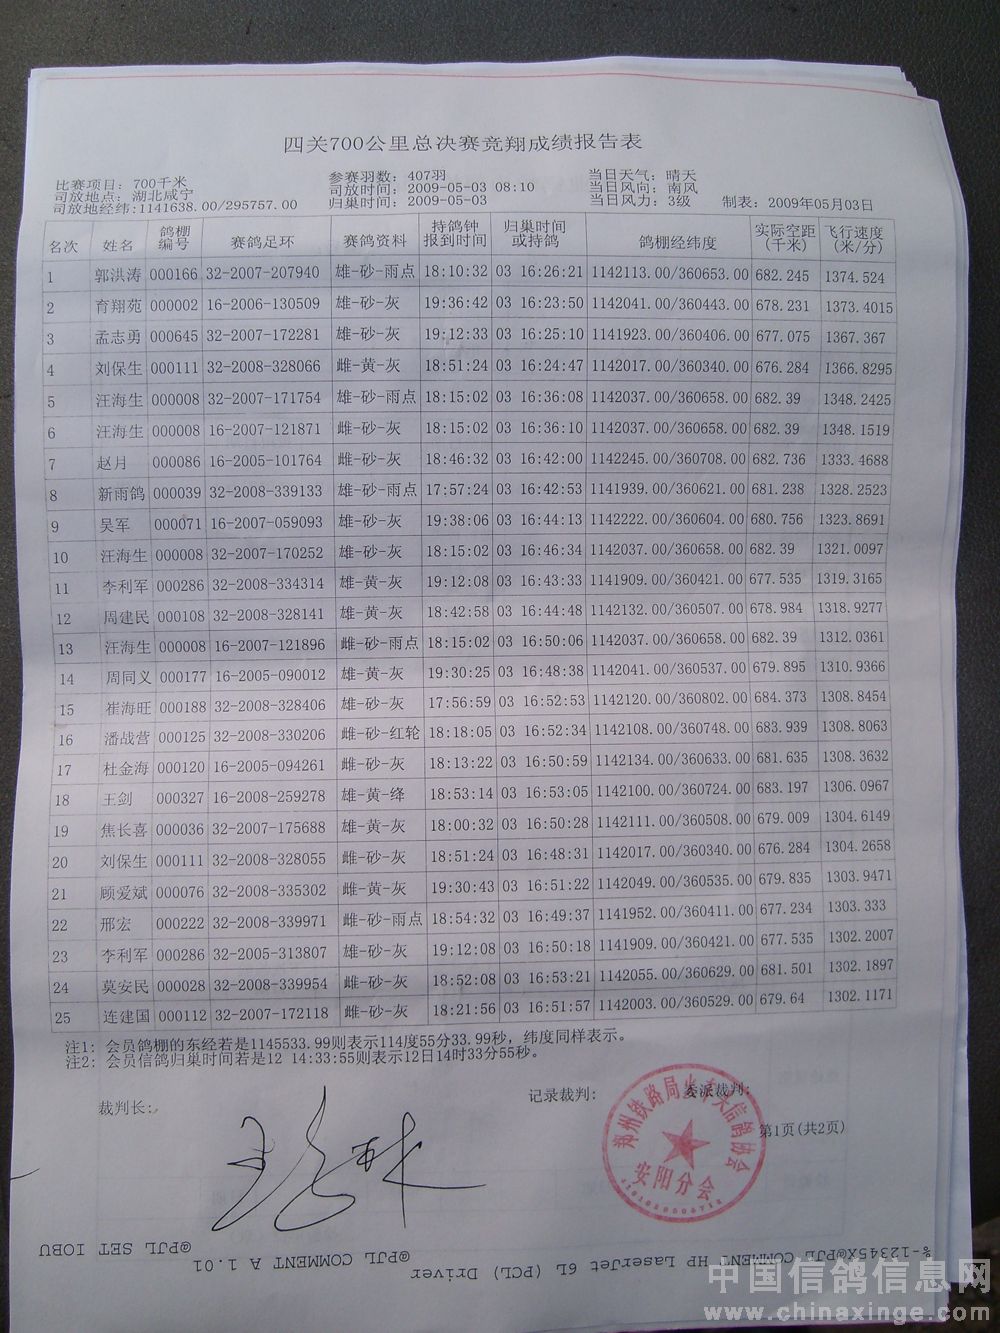 四关700公里总决赛竞翔成绩报告表
比赛项目: 700千米 参赛羽数: 407羽 当日天气: 晴天
司放地点: 湖北咸宁 司放时间: 2009-05-03 08:10 当日风向: 南风
司放地经纬:1141638.00/295757.00 归巢时间: 2009-05-03 当日风力: 3级 制表: 2009年05月03日
名次 姓名 鸽棚编号 赛鸽足环 赛鸽资料 持鸽钟报到时间 归巢时间或持鸽 鸽棚经纬度 实际空距(千米) 飞行速度(米/分)
1 郭洪涛 000166 32-2007-207940 雄-砂-雨点 18:10:32 03 16:26:21 1142113.00/360653.00 682.245 1374.524
2 育翔苑 000002 16-2006-130509 雄-砂-灰 19:36:42 03 16:23:50 1142041.00/360443.00 678.231 1373.4015
3 孟志勇 000645 32-2007-172281 雄-砂-灰 19:12:33 03 16:25:10 1141923.00/360406.00 677.075 1367.367
4 刘保生 000111 32-2008-328066 雌-黄-灰 18:51:24 03 16:24:47 1142017.00/360340.00 676.284 1366.8295
5 汪海生 000008 32-2007-171754 雄-砂-雨点 18:15:02 03 16:36:08 1142037.00/360658.00 682.39 1348.2425
6 汪海生 000008 16-2007-121871 雌-砂-灰 18:15:02 03 16:36:10 1142037.00/360658.00 682.39 1348.1519
7 赵月 000086 16-2005-101764 雌-砂-灰 18:46:32 03 16:42:00 1142245.00/360708.00 682.736 1333.4688
8 新雨鸽 000039 32-2008-339133 雄-砂-雨点 17:57:24 03 16:42:53 1141939.00/360621.00 681.238 1328.2523
9 吴军 000071 16-2007-059093 雄-砂-灰 19:38:06 03 16:44:13 1142222.00/360604.00 680.756 1323.8691
10 汪海生 000008 32-2007-170252 雄-砂-灰 18:15:02 03 16:46:34 1142037.00/360658.00 682.39 1321.0097
11 李利军 000286 32-2008-334314 雄-黄-灰 19:12:08 03 16:43:33 1141909.00/360421.00 677.535 1319.3165
12 周建民 000108 32-2008-328141 雄-黄-灰 18:42:58 03 16:44:48 1142132.00/360507.00 678.984 1318.9277
13 汪海生 000008 16-2007-121896 雌-砂-雨点 18:15:02 03 16:50:06 1142037.00/360658.00 682.39 1312.0361
14 周同义 000177 16-2005-090012 雄-黄-灰 19:30:25 03 16:48:38 1142041.00/360537.00 679.895 1310.9366
15 崔海旺 000188 32-2008-328406 雄-砂-灰 17:56:59 03 16:52:53 1142120.00/360802.00 684.373 1308.8454
16 潘战营 000125 32-2008-330206 雌-砂-红轮 18:18:05 03 16:52:34 1142108.00/360748.00 683.939 1308.8063
17 杜金海 000120 16-2005-094261 雌-砂-灰 18:13:22 03 16:50:59 1142134.00/360633.00 681.635 1308.3632
18 王剑 000327 16-2008-259278 雄-黄-绛 18:53:14 03 16:53:05 1142100.00/360724.00 683.197 1306.0967
19 焦长喜 000036 32-2007-175688 雄-黄-灰 18:00:32 03 16:50:28 1142111.00/360508.00 679.009 1304.6149
20 刘保生 000111 32-2008-328055 雌-砂-灰 18:51:24 03 16:48:31 1142017.00/360340.00 676.284 1304.2658
21 顾爱斌 000076 32-2008-335302 雌-黄-灰 19:30:43 03 16:51:22 1142049.00/360535.00 679.835 1303.9471
22 邢宏 000222 32-2008-339971 雌-砂-雨点 18:54:32 03 16:49:37 1141952.00/360411.00 677.234 1303.333
23 李利军 000286 32-2005-313807 雄-砂-灰 19:12:08 03 16:50:18 1141909.00/360421.00 677.535 1302.2007
24 莫安民 000028 32-2008-339954 雌-砂-灰 18:52:08 03 16:53:21 1142055.00/360629.00 681.501 1302.1897
25 连建国 000112 32-2007-172118 雌-砂-灰 18:21:56 03 16:51:57 1142003.00/360529.00 679.64 1302.1171
注1: 会员鸽棚的东经若是1145533.99则表示114度55分33.99秒，纬度同样表示。
注2: 会员信鸽归巢时间若是12 14:33:55则表示12日14时33分55秒。
裁判长: 记录裁判: 委派裁判:
第1页(共2页)
郑州铁路局火车头信鸽协会
安阳分会
%-12345X@PJL COMMENT HP LaserJet 6L (PCL) Driver
@PJL COMMENT A 1.01
@PJL SET IOBU
中国信鸽信息网
www.chinaxinge.com